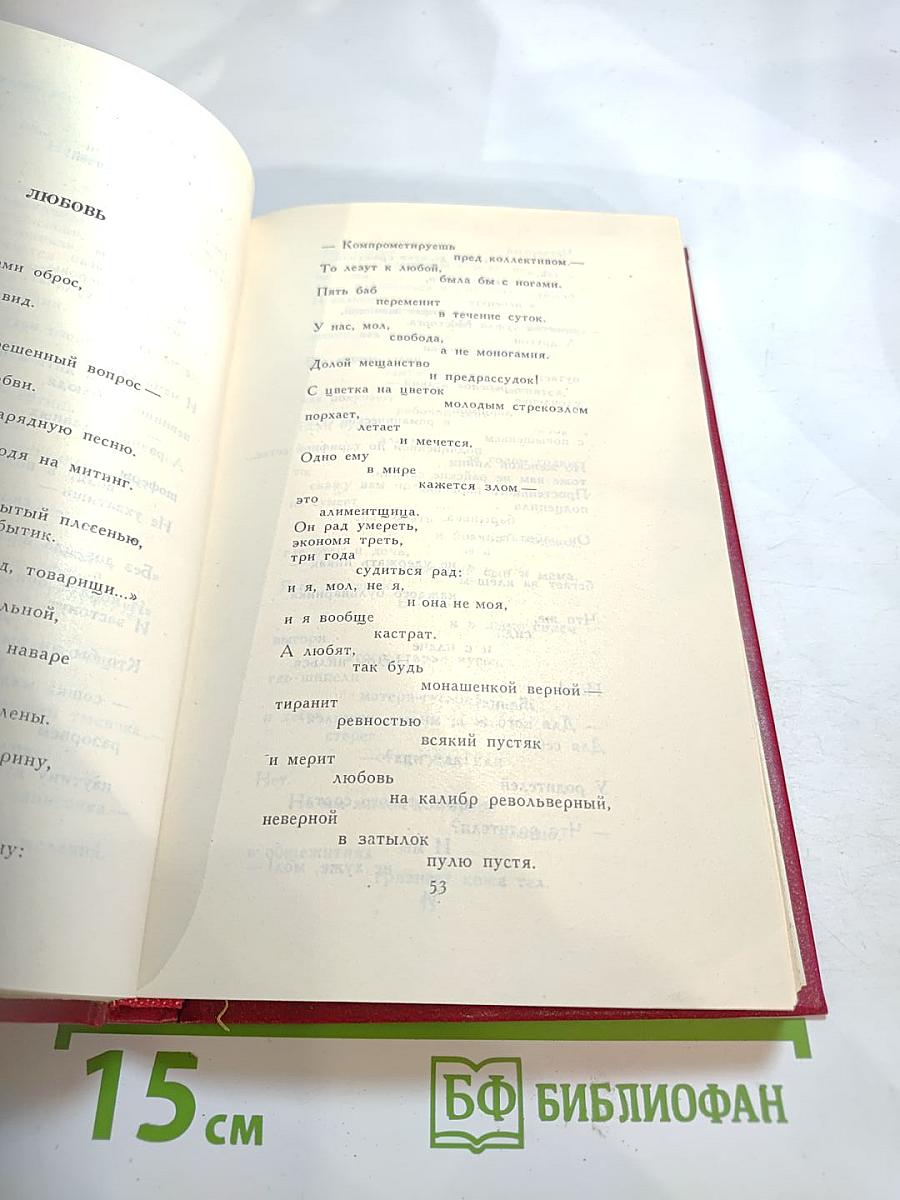 ЛЮБОВЬ
оброс,
вид.
вопрос—
песню.
на митинг.
плесенью,
товарищи..."
наваре
— Компрометируешь
пред коллективом.—
То лезут к любой,
была бы с ногами.
Пять баб
переменит
в течение суток.
У нас, мол,
свобода,
а не моногамия.
Долой мещанство
и предрассудок!
С цветка на цветок
молодым стрекозлом
порхает,
летает
и мечется.
Одно ему
в мире
кажется злом—
это
алиментщица.
Он рад умереть,
экономя треть,
три года
судиться рад:
и я, мол, не я,
и она не моя,
и я вообще
кастрат.
А любят,
так будь
монашенкой верной—
тиранит
ревностью
всякий пустяк
и мерит
любовь
на калибр револьверный,
неверной
в затылок
пулю пустя.
53
15 см
БФ БИБЛИОФАН